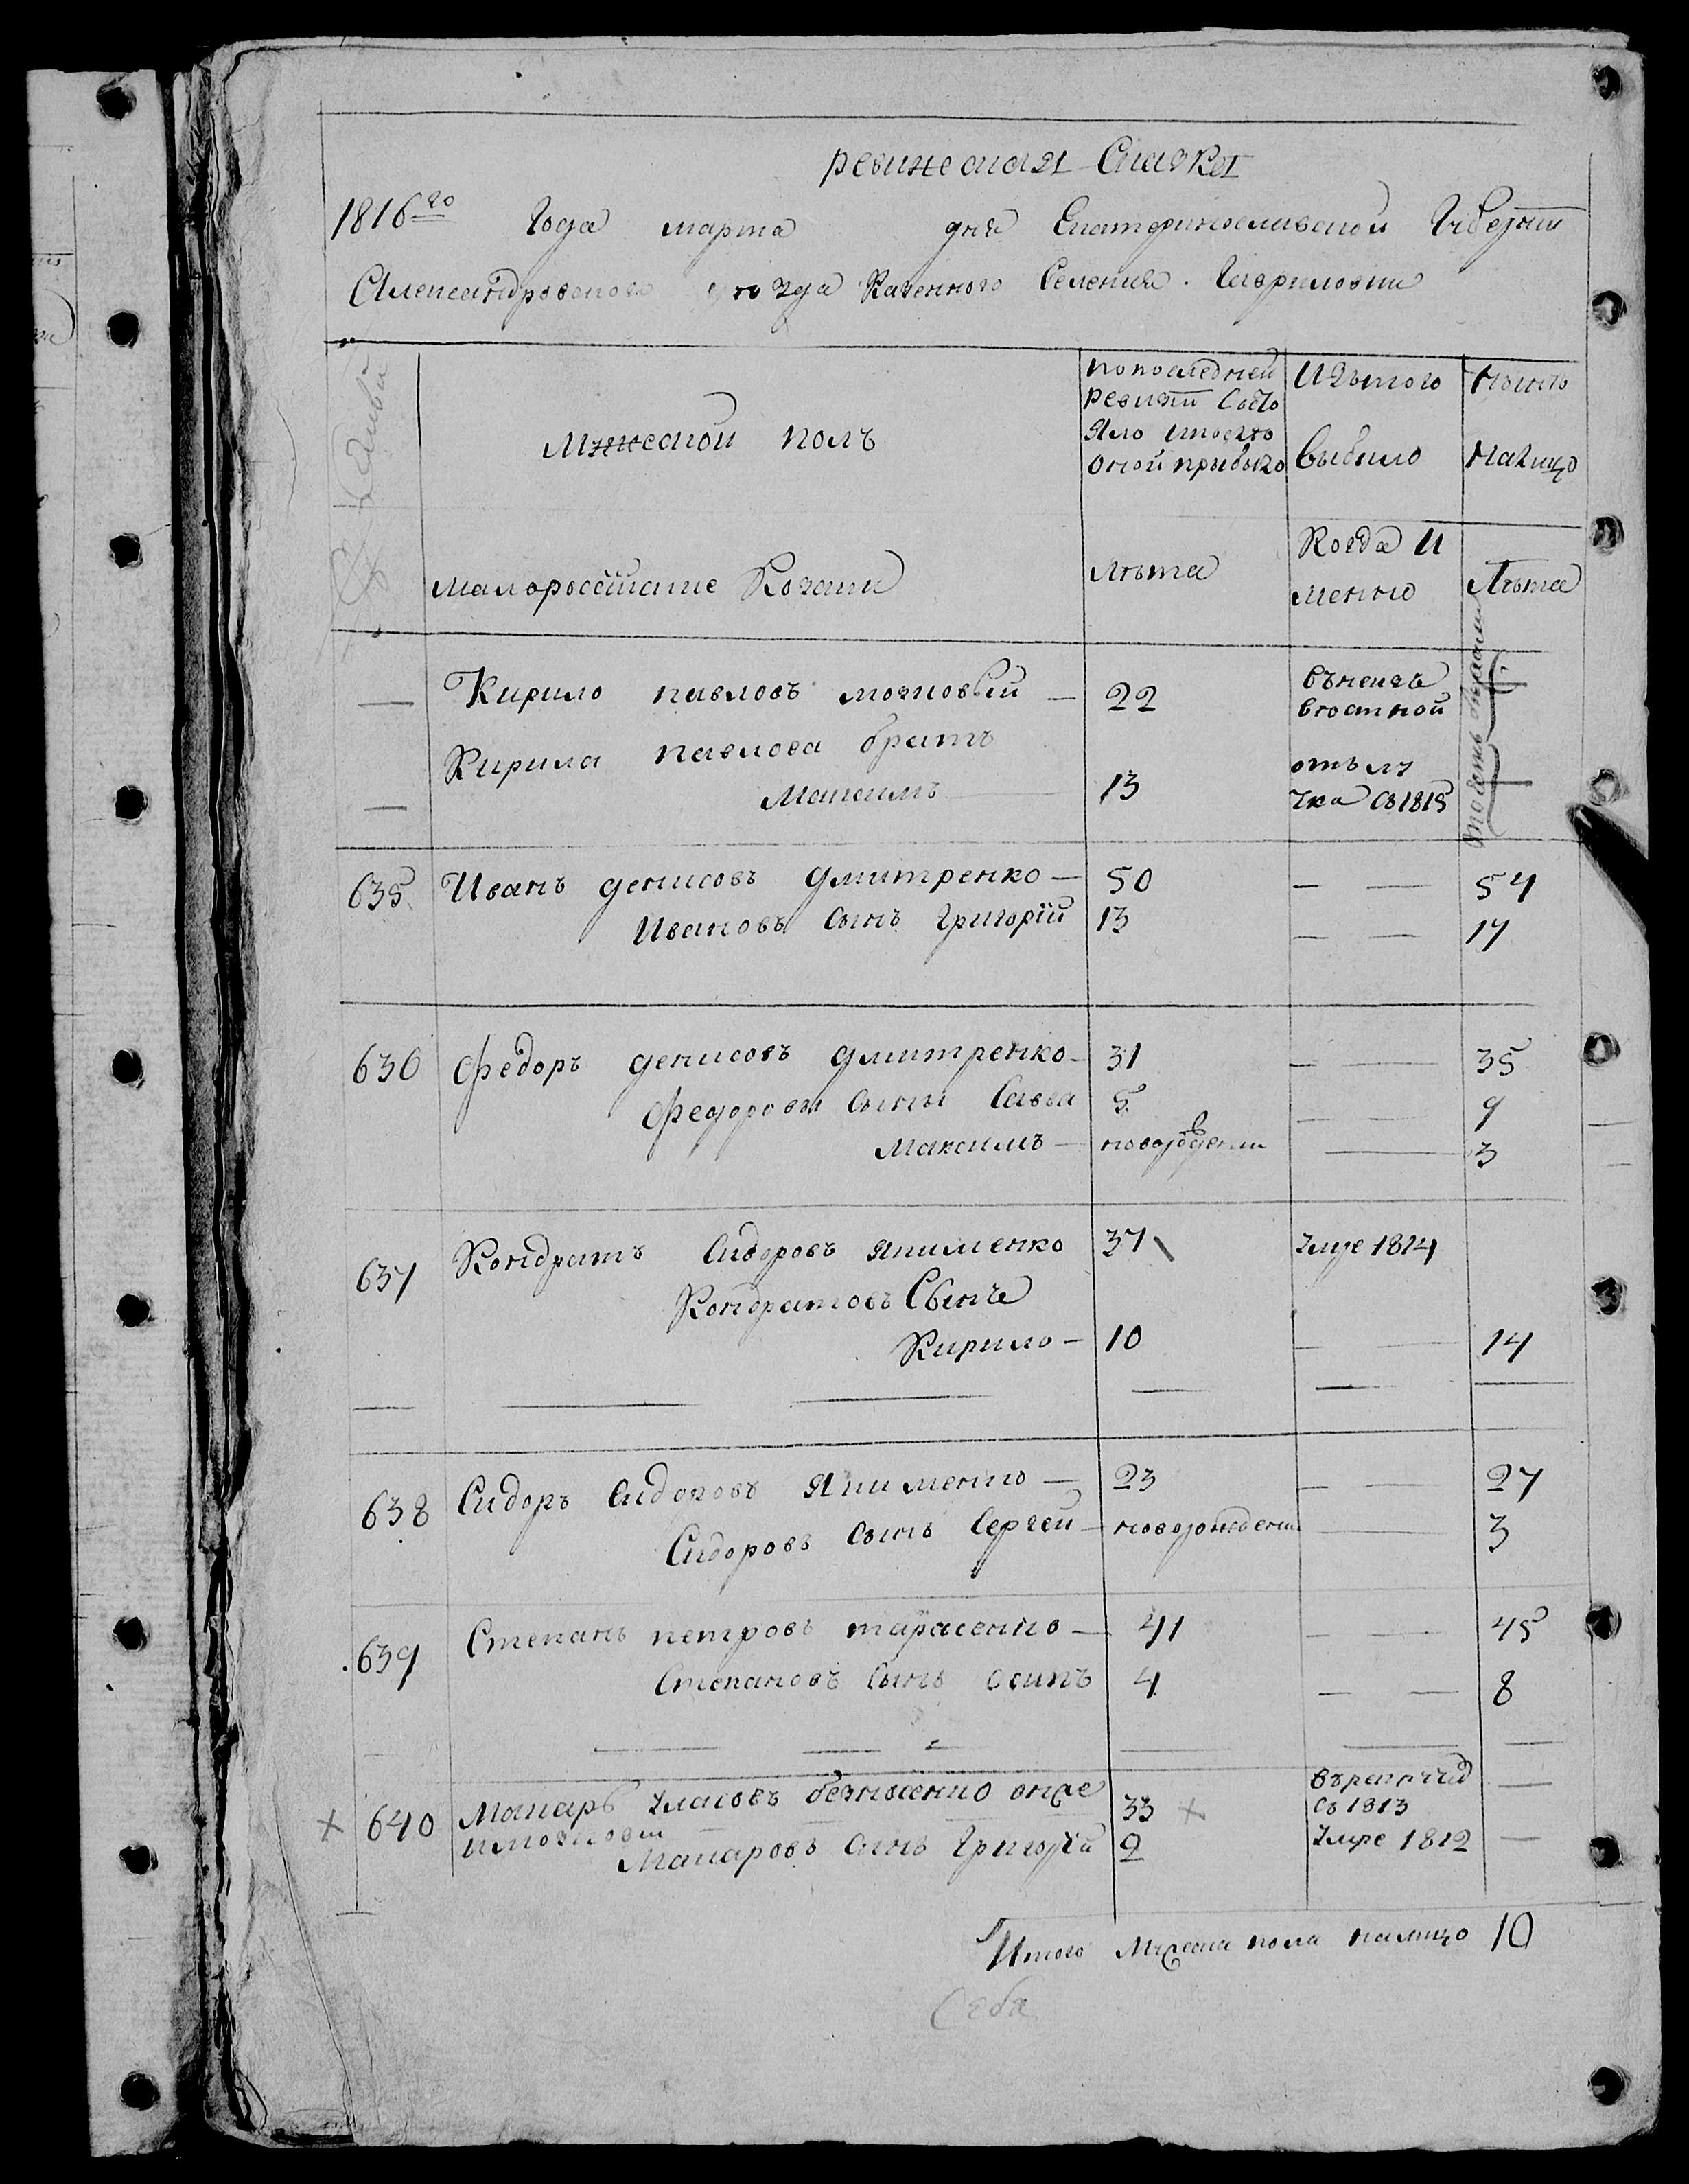 ревижская Сказка
1816го Года марта дня Екатеринославской Губернии
Александровского уѣзда Казенного Селения Гавриловки
Мужеской полъ
По последней ревизии Состояло и после оной прибыло
Изътого выбыло
Нынѣ налицо
Малороссийские Козаки
Лѣта
Когда И менно
Лѣта
— Кирило павловъ мозговый — 22
Кирила павлова братъ
— Максимъ 13
отълу чка съ 1815
635 Иванъ денисовъ дмитренко — 50 — — 54
Ивановъ сынъ Григорій 13 — — 17
636 Федоръ денисовъ дмитренко — 31 — — 35
Федоровы сыны Савва 5 — — 9
Максимъ — новорожденни — 3
637 Кондратъ Сидоровъ якименко 37 Умре 1814
Кондратовъ Сынъ
Кирило — 10 — — 14
638 Сидоръ Сидоровъ Якименко — 23 — — 27
Сидоровъ сынъ Сергей — новорожденни — 3
639 Степанъ петровъ тарасенко — 41 — — 45
Степановъ сынъ осипъ 4 — — 8
× 640 Макаръ власовъ 33 × съ 1813 —
Макаровъ сынъ Григорій 2 Умре 1812 —
Итого Мужеска пола налицо 10